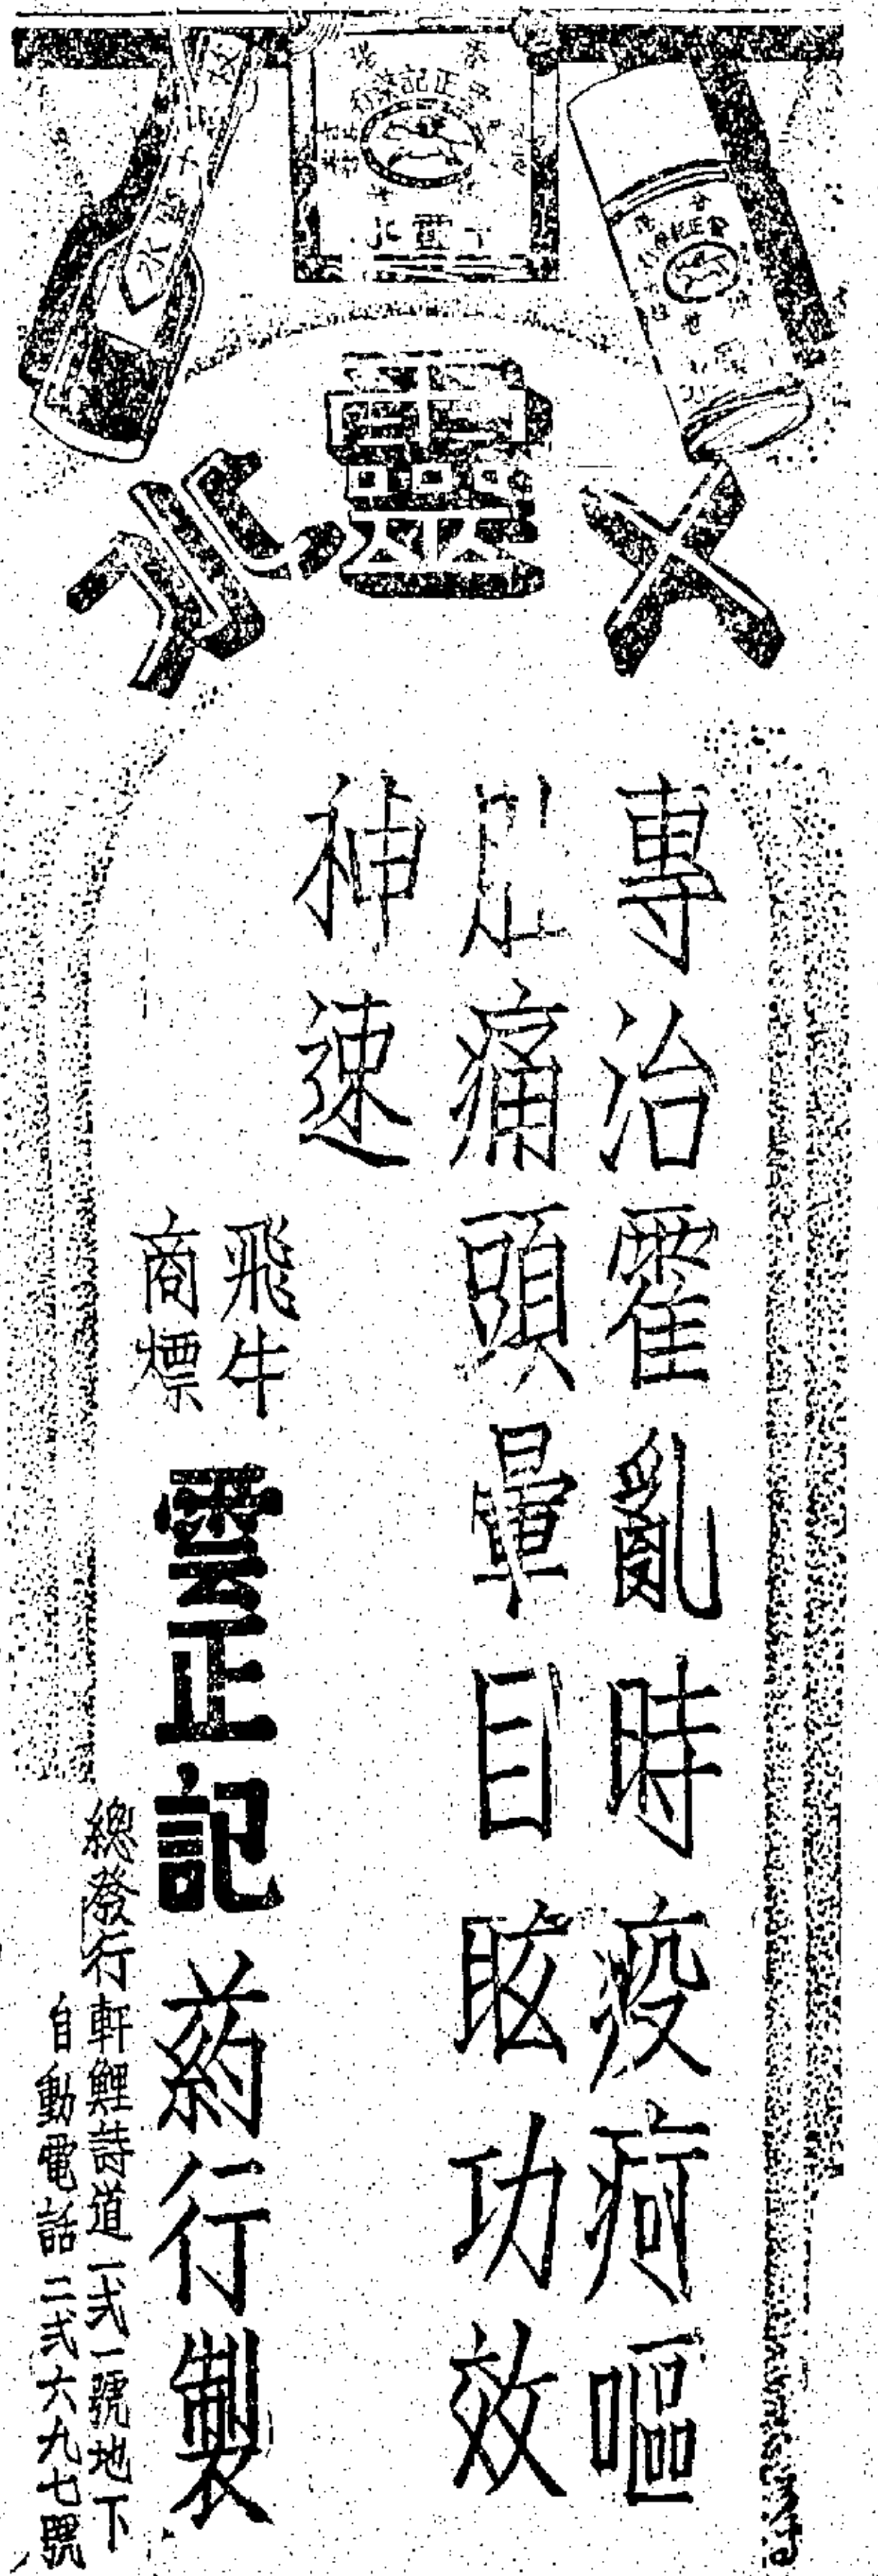 十靈水
專治霍亂時疫痾嘔
肚痛頭暈目眩功效
神速
飛牛
商標
雲正記葯行製
總發行軒鯉詩道一弍一號地下
自動電話二弍六九七號